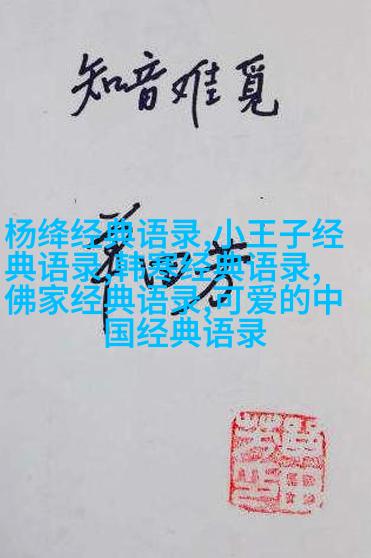 知音难觅
单田芳
杨绛经典语录,小王子经
典语录,韩寒经典语录,
佛家经典语录,可爱的中
国经典语录